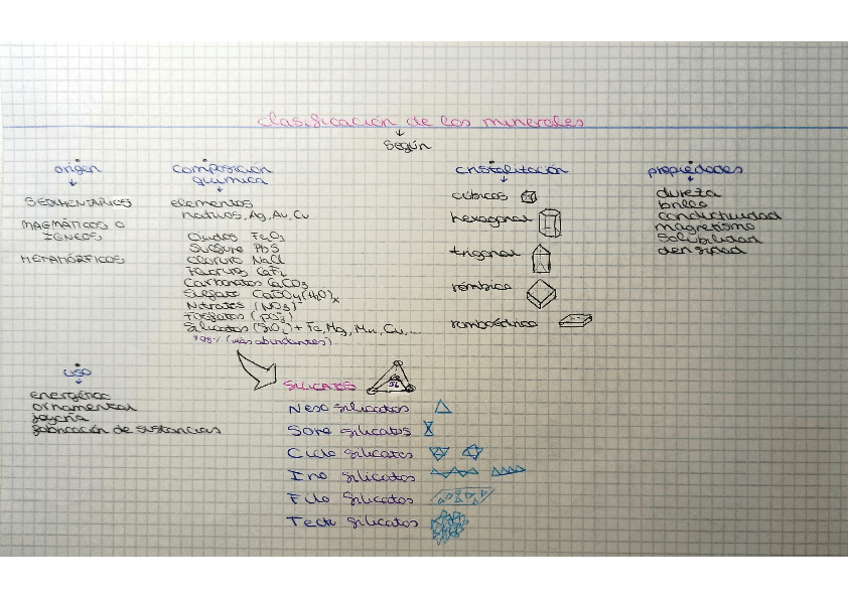 clasificación de los minerales
según
origen
SEDIMENTARIOS
MAGMÁTICOS O
ÍGNEOS
METAMÓRFICOS
composición
química
elementos
nativos, Ag, Au, Cu
Óxidos Fe2O3
Sulfuro PbS
Cloruro NaCl
Fluoruro CaF2
Carbonatos CaCO3
Sulfato CaSO4(H2O)x
Nitratos (NO3)-
Fosfatos
Silicatos (SiO2) + Fe, Mg, Mn, Cu,...
(más abundantes)
cristalización
cúbicos
hexagonal
trigonal
rómbico
romboédrico
propiedades
dureza
brillo
conductividad
magnetismo
solubilidad
densidad
uso
energético
ornamental
joyería
fabricación de sustancias
SILICATOS
Neso silicatos
Soro silicatos
Ciclo silicatos
Ino silicatos
Filo silicatos
Tecto silicatos